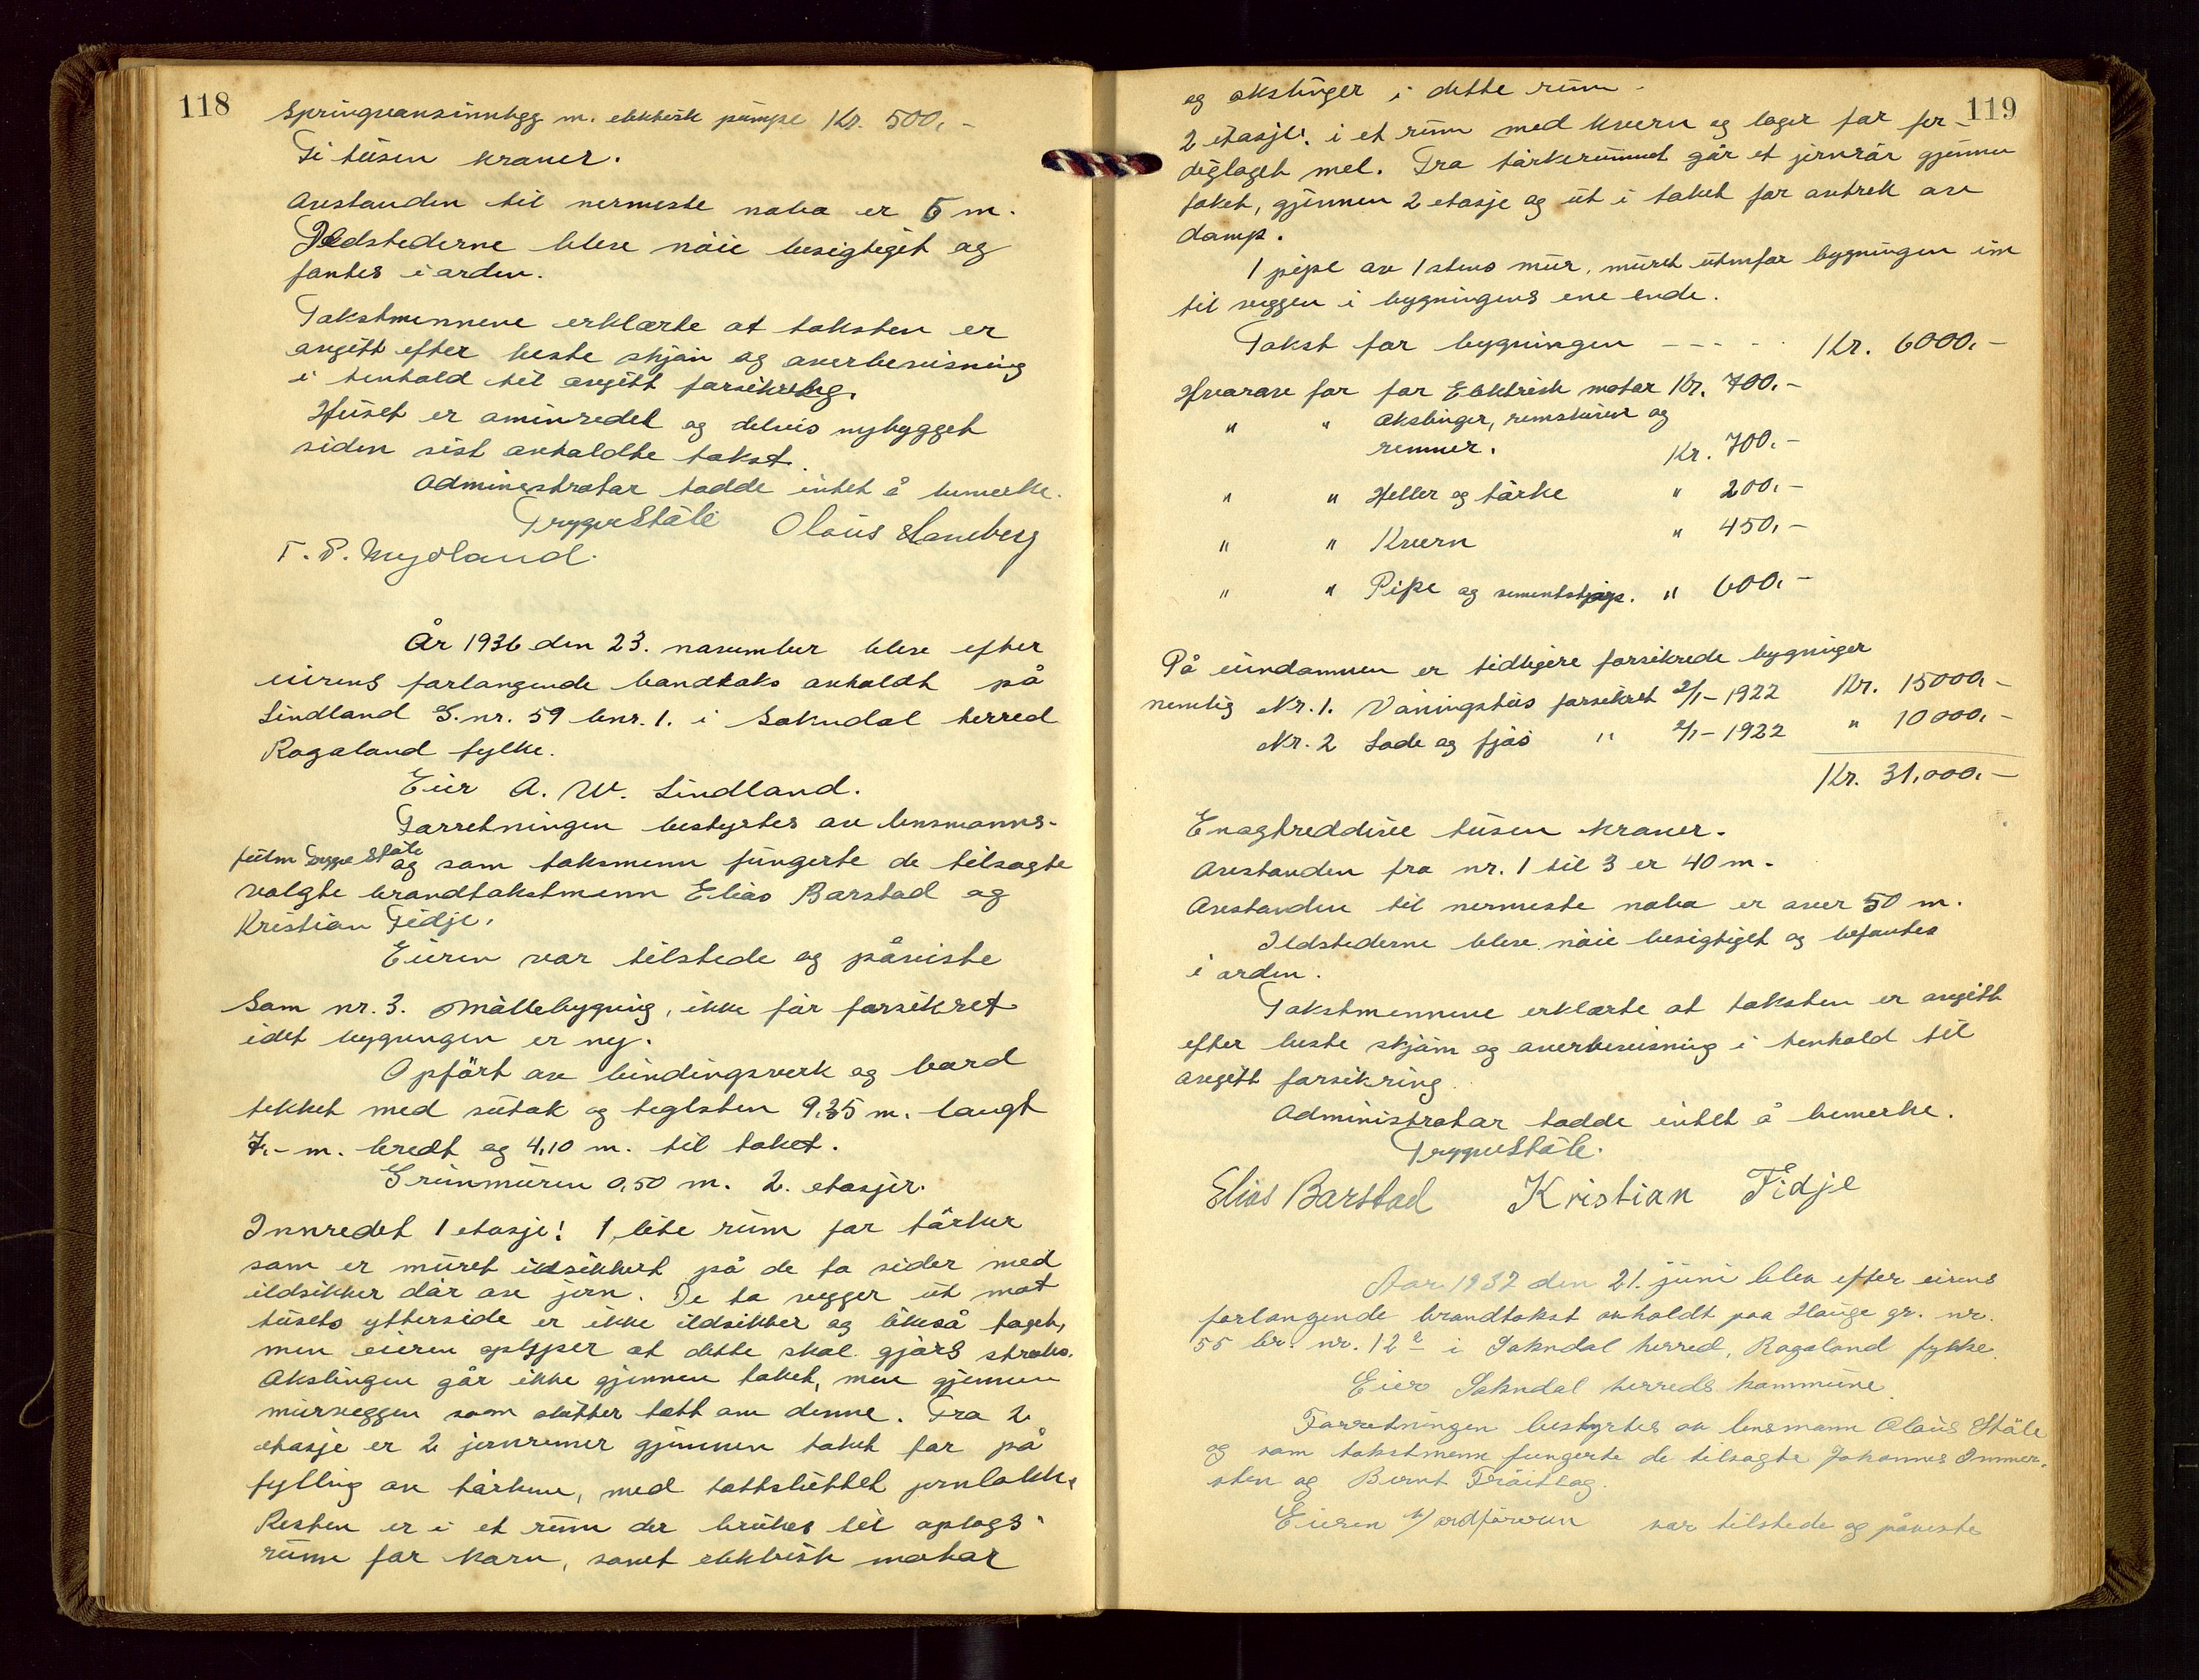 118
Springvansinnlegg m. elektrisk pumpe Kr. 500,-
Ti tusen kroner.
Avstanden til nermeste nabo er 6 m.
Ildstederne blev nöie besigtiget og
fantes i orden.
Takstmennene erklærte at taksten er
avgitt efter beste skjön og overbevisning
i henhold til avgitt forsikring.
Huset er ominredet og delvis nybygget
siden sist avholdte takst.
Administrator hadde intet å bemerke.
Trygve Ståle Olaus Haneberg
T. P. Mydland.
År 1936 den 23. november blev efter
eierens forlangende bandtaks avholdt på
Lindland G.nr. 59 bnr. 1. i Sokndal herred
Rogaland fylke.
Eier A. W. Lindland.
Forretningen bestyrtes av lensmanns-
fullm Trygve Ståle og som taksmenn fungerte de tilsagte
valgte brandtakstmenn Elias Barstad og
Kristian Fidje.
Eieren var tilstede og påviste
Som nr. 3. Möllebygnig, ikke för forsikret
idet bygningen er ny.
Opfört av bindingsverk og bord
tekket med sutak og teglsten 9.35 m. langt
7,- m. bredt og 4,10 m. til taket.
Grunmuren 0,50 m. 2. etasjer.
Innredet 1 etasje! 1 lite rum for törker
som er muret ildsikkert på de to sider med
ildsikker dör av jern. De to vegger ut mot
husets ytterside er ikke ildsikker og likeså taget,
men eieren oplyser at dette skal gjörs straks.
Akslingen går ikke gjennem taket, men gjennem
murveggen som slutter tett om denne. Fra 2
etasje er 2 jernrenner gjennem taket for på
fylling av törkene, med tettsluttet jernlokk.
Resten er i et rum der brukes til oplags-
rum for korn, samt elektrisk motor
119
og akslinger i dette rum.
2 etasje: i et rum med kvern og lager for fer-
diglaget mel. Fra törkerummet går et jernrör gjennem
taket, gjennem 2 etasje og ut i taket for avtrek av
damp.
1 pipe av 1 stens mur, muret utenfor bygningen inn
til veggen i bygningens ene ende.
Takst for bygningen - - - - - Kr. 6000,-
Hvorav for for Elektrisk motor Kr. 700,-
" " Akslinger, remskiver og
remmer. Kr. 700,-
" " Heller og törke " 200,-
" " Kvern " 450,-
" " Pipe og sementstöp. " 600,-
På eiendommen er tidligere forsikrede bygninger
nemlig Nr. 1. Våningshus forsikret 2/1-1922 Kr. 15000,-
Nr. 2 Lade og fjös " 2/1-1922 " 10000,-
Kr. 31,000,-
Enogtreddive tusen kroner.
Avstanden fra nr. 1 til 3 er 40 m.
Avstanden til nermeste nabo er over 50 m.
Ildstederne blev nöie besigtiget og befantes
i orden.
Takstmennene erklærte at taksten er avgitt
efter beste skjöm og overbevisning i henhold til
avgitt forsikring.
Administrator hadde intet å bemerke.
Trygve Ståle.
Elias Barstad Kristian Fidje
Aar 1937 den 21. juni blev efter eirens
forlangende brandtakst avholdt paa Hauge gr. nr.
55 br. nr. 12 i Sokndal herred, Rogaland fylke.
Eier Sokndal herreds kommune
Forretningen bestyrtes av lensmann Olaus Ståle
og som takstmenn fungerte de tilsagte Johannes Immer-
sten og Bernt Fröitlog.
Eieren v/ ordföreren var tilstede og påviste